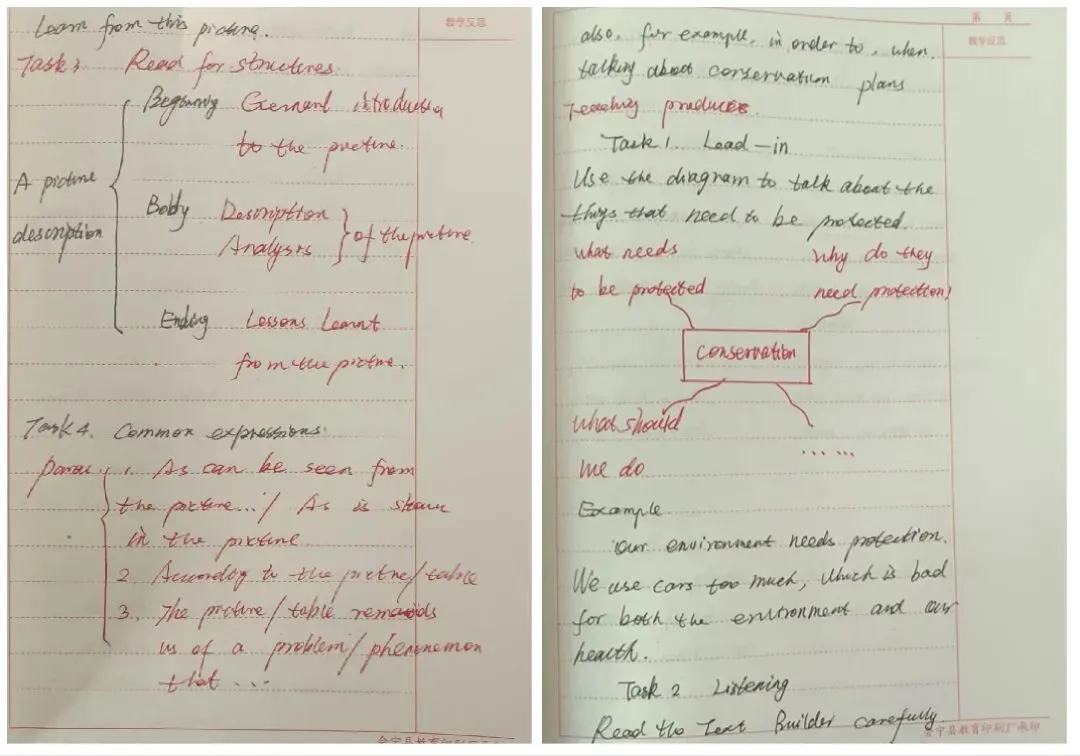 Learn from this picture.
教学反思
Task 3 Read for structures.
Beginning General introduction
to the picture.
A picture
description
Bobdy Description
Analysis
of the picture
Ending Lessons Learnt
from the picture.
Task 4. Common expressions:
Paras 1. As can be seen from
the picture.../ As is shown
in the picture
2. According to the picture/table
3. The picture/table reminds
us of a problem/phenomenon
that ...
会宁县教育印刷厂承印
第 页
教学反思
also, for example, in order to, when
talking about conservation plans
Teaching produces.
Task 1. Lead-in
Use the diagram to talk about the
things that need to be protected.
what needs
to be protected
why do they
need protection?
conservation
what should
we do
... ...
Example
our environment needs protection.
We use cars too much, which is bad
for both the environment and our
health.
Task 2 Listening
Read the Text Builder carefully.
会宁县教育印刷厂承印